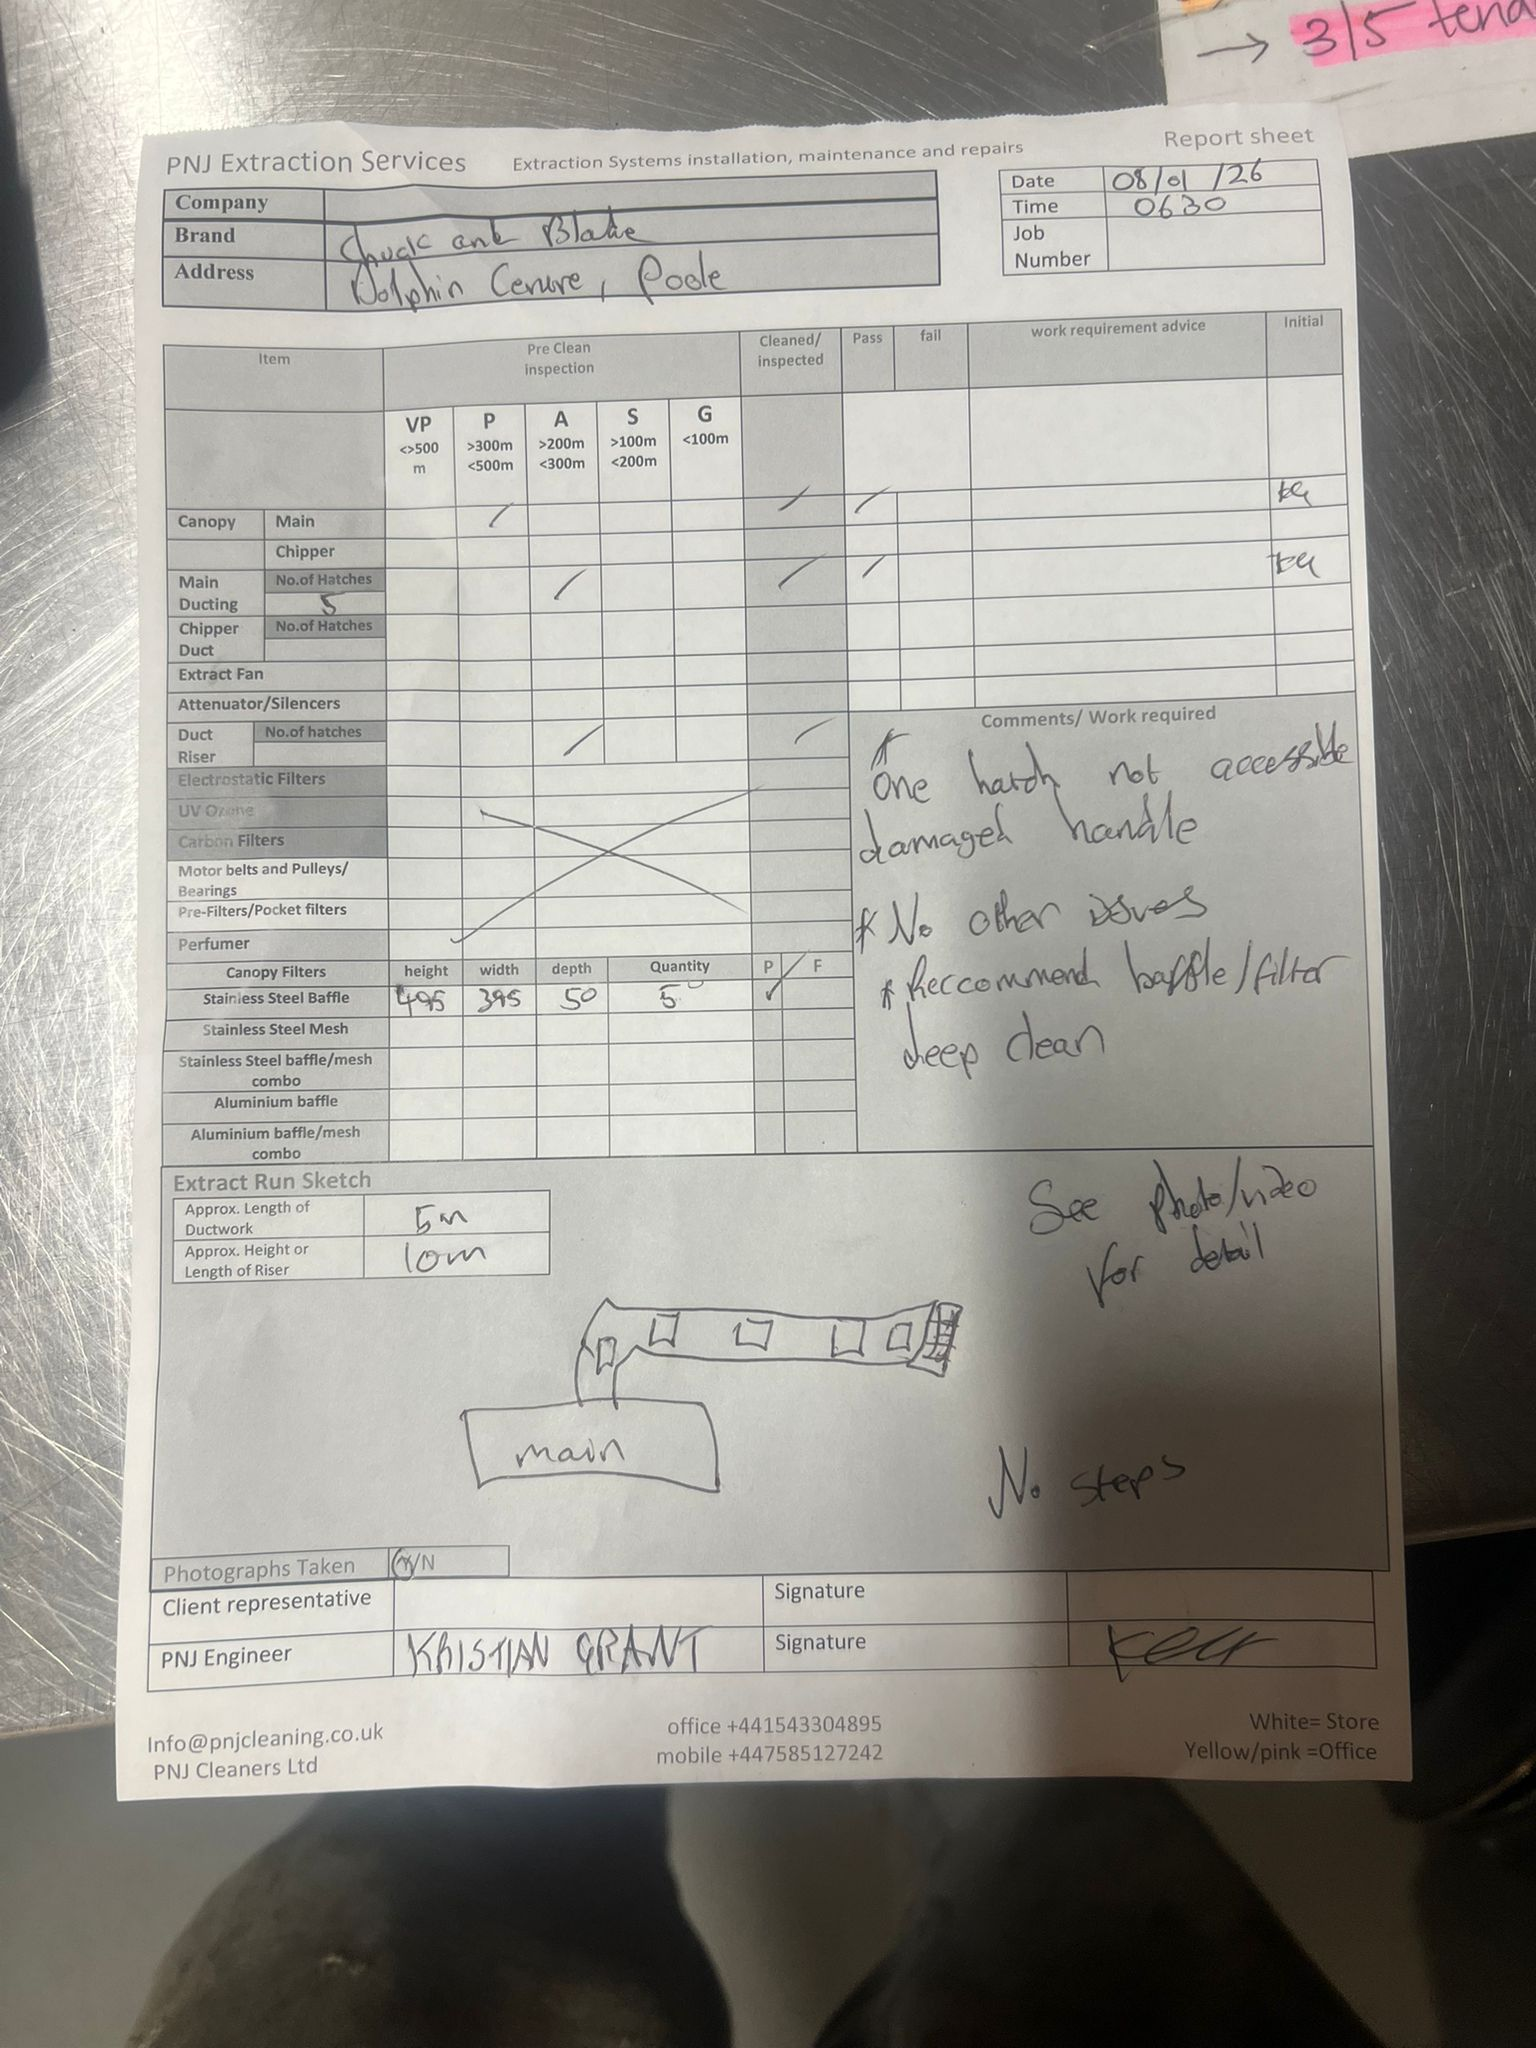 → 3/5 tend
PNJ Extraction Services Extraction Systems installation, maintenance and repairs Report sheet
Company
Brand Chuck and Blake
Address Dolphin Cenure, Poole
Date 08/01/26
Time 0630
Job Number
Item Pre Clean inspection Cleaned/ inspected Pass fail work requirement advice Initial
VP P A S G
<>500 m >300m <500m >200m <300m >100m <200m <100m
Canopy Main / / / KG
Chipper
Main Ducting No.of Hatches 5 / / / KG
Chipper Duct No.of Hatches
Extract Fan
Attenuator/Silencers
Duct Riser No.of hatches / /
Electrostatic Filters
UV Ozone
Carbon Filters
Motor belts and Pulleys/ Bearings
Pre-Filters/Pocket filters
Perfumer
Canopy Filters height width depth Quantity P / F
Stainless Steel Baffle 495 395 50 5 ✓
Stainless Steel Mesh
Stainless Steel baffle/mesh combo
Aluminium baffle
Aluminium baffle/mesh combo
Comments/ Work required
* One hatch not accessible
damaged handle
* No other issues
* Reccommend baffle/filter
deep clean
Extract Run Sketch
Approx. Length of Ductwork 5m
Approx. Height or Length of Riser 10m
See photo/video
for detail
main
No steps
Photographs Taken Y/N
Client representative Signature
PNJ Engineer KRISTIAN GRANT Signature
Info@pnjcleaning.co.uk office +441543304895 White= Store
PNJ Cleaners Ltd mobile +447585127242 Yellow/pink =Office